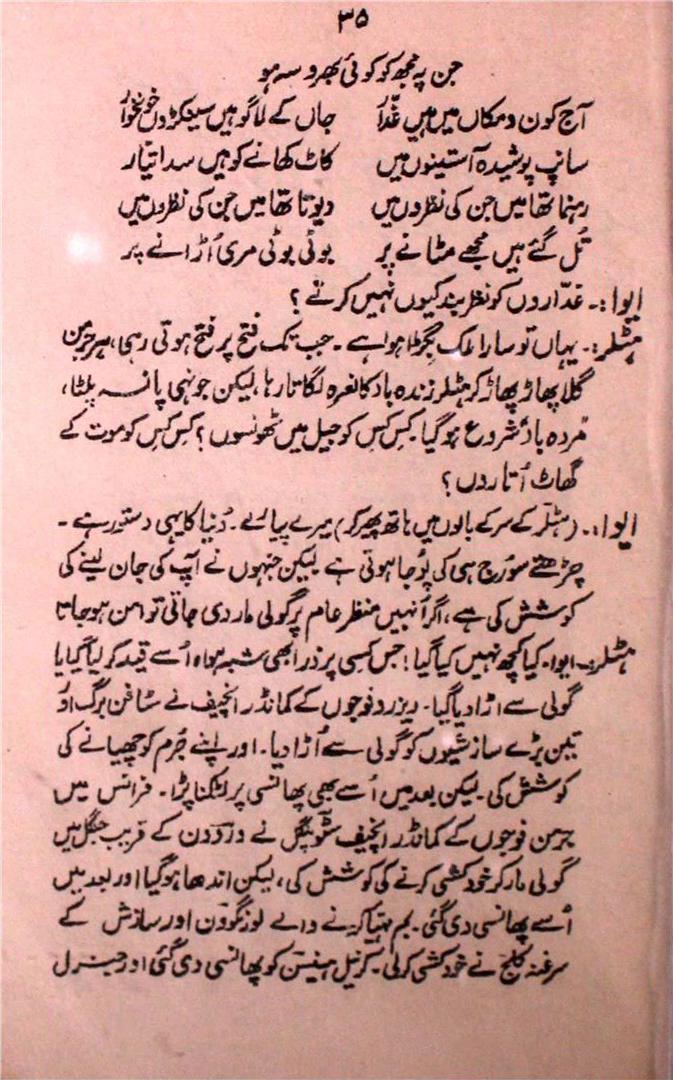 ۳۵
جن پہ مجھ کو کوئی بھروسہ ہو
آج کون و مکاں میں ہیں غدّار جاں کے لاگو ہیں سینکڑوں خونخوار
سانپ پوشیدہ آستینوں میں کاٹ کھانے کو ہیں سدا تیّار
رہنما تھا میں جن کی نظروں میں دیوتا تھا میں جن کی نظروں میں
تُل گئے ہیں مجھے مٹانے پر بوٹی بوٹی مری اُڑانے پر
ایوا:۔ غدّاروں کو نظر بند کیوں نہیں کرتے ؟
ہٹلر:۔ یہاں تو سارا ملک بگڑا ہوا ہے ۔ جب تک فتح پر فتح ہوتی رہی، ہر جرمن
گلا پھاڑ پھاڑ کر ہٹلر زندہ باد کا نعرہ لگاتا رہا، لیکن جونہی پانسہ پلٹا،
مُردہ باد شروع ہو گیا۔ کِس کِس کو جیل میں ٹھونسوں ؟ کِس کِس کو موت کے
گھاٹ اُتاروں ؟
ایوا:۔ (ہٹلر کے سر کے بالوں میں ہاتھ پھیر کر) میرے پیارے ۔ دُنیا کا یہی دستور ہے ۔
چڑھتے سُورج ہی کی پُوجا ہوتی ہے لیکن جنہوں نے آپ کی جان لینے کی
کوشش کی ہے، اگر اُنہیں منظر عام پر گولی مار دی جاتی تو امن ہو جاتا
ہٹلر:۔ ایوا۔ کیا کچھ نہیں کیا گیا! جس کسی پر ذرا بھی شبہ ہوا، اُسے قید کر لیا گیا یا
گولی سے اڑا دیا گیا۔ ریزرو فوجوں کے کمانڈر انچیف نے سٹافن برگ اور
تین بڑے سازشیوں کو گولی سے اُڑا دیا۔ اور اپنے جُرم کو چھپانے کی
کوشش کی۔ لیکن بعد میں اُسے بھی پھانسی پر لٹکنا پڑا۔ فرانس میں
جرمن فوجوں کے کمانڈر انچیف سٹوپنگل نے ورڈون کے قریب جنگل میں
گولی مار کر خودکشی کرنے کی کوشش کی، لیکن اندھا ہو گیا اور بعد میں
اُسے پھانسی دی گئی۔ بم مہیّا کرنے والے لوزگوون اور سازش کے
سرغنہ کلج نے خودکشی کر لی۔ کرنیل ہینسن کو پھانسی دی گئی اور جنرل